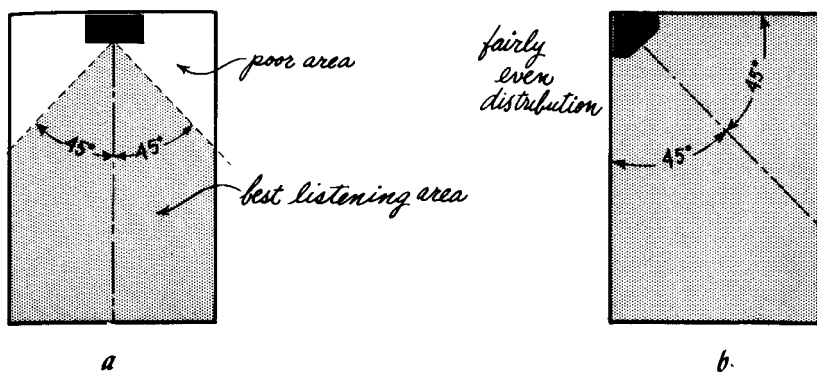 poor area
45°
45°
best listening area
a
fairly
even
distribution
45°
45°
b.